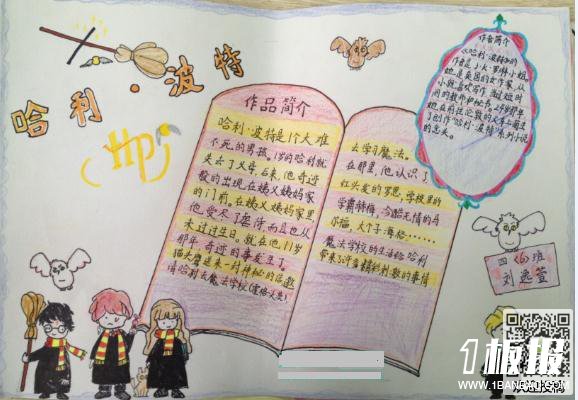 哈利·波特
HP
作品简介
哈利·波特是1个大难
不死的男孩,1岁的哈利就
失去了父母,后来,他奇迹
般的出现在姨父姨妈家
的门前,在姨父姨妈家里,
他受尽了虐待而且也从
未过过生日。就在他11岁
那年,奇迹的事发生了,
猫头鹰送来一封神秘的信邀
请哈利去魔法学校(霍格沃兹)
去学习魔法。
在那里,他认识了
红头发的罗恩,学校里的
学霸赫梅,冷酷无情的马
尔福,大个子海格……
魔法学校的生活给哈利
带来许多精彩刺激的事情
作者简介
《哈利·波特》的
作者是J·K·罗林小姐,
她是英国的女作家,从
小就喜欢写作,当过短时
间的教师和秘书。24岁那年
她在前往伦敦的火车上萌生
了创作“哈利·波特”系列小说
的念头。
四〈6〉班
刘逸萱
1板报
WWW.1BANBAO.COM